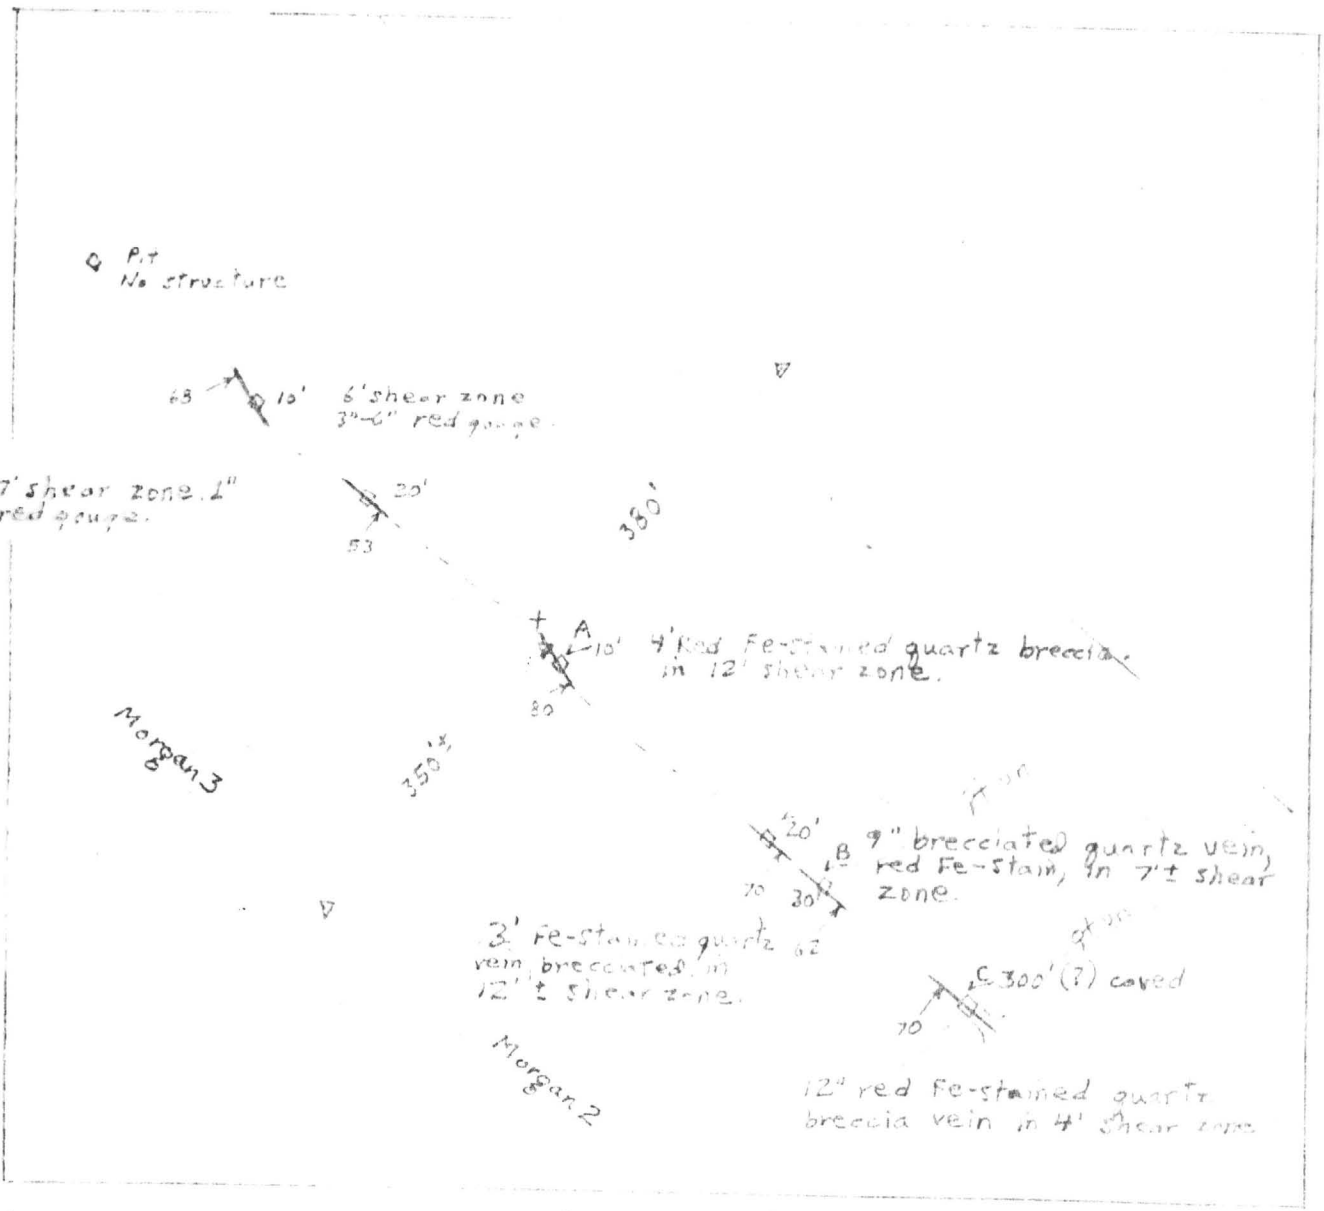 Pit
No structure
68
10'
6' shear zone
3"-6" red gouge.
7' shear zone. 1"
red gouge.
20'
53
380'
A
10'
4' Red Fe-stained quartz breccia.
in 12' shear zone.
80
Morgan 3
350'
20'
B
9" brecciated quartz vein,
red Fe-stain, in 7'± shear
zone.
70
30'
62
3' Fe-stained quartz
vein, brecciated, in
12'± shear zone.
C
300' (?) caved
70
Morgan 2
12" red Fe-stained quartz
breccia vein in 4' shear zone